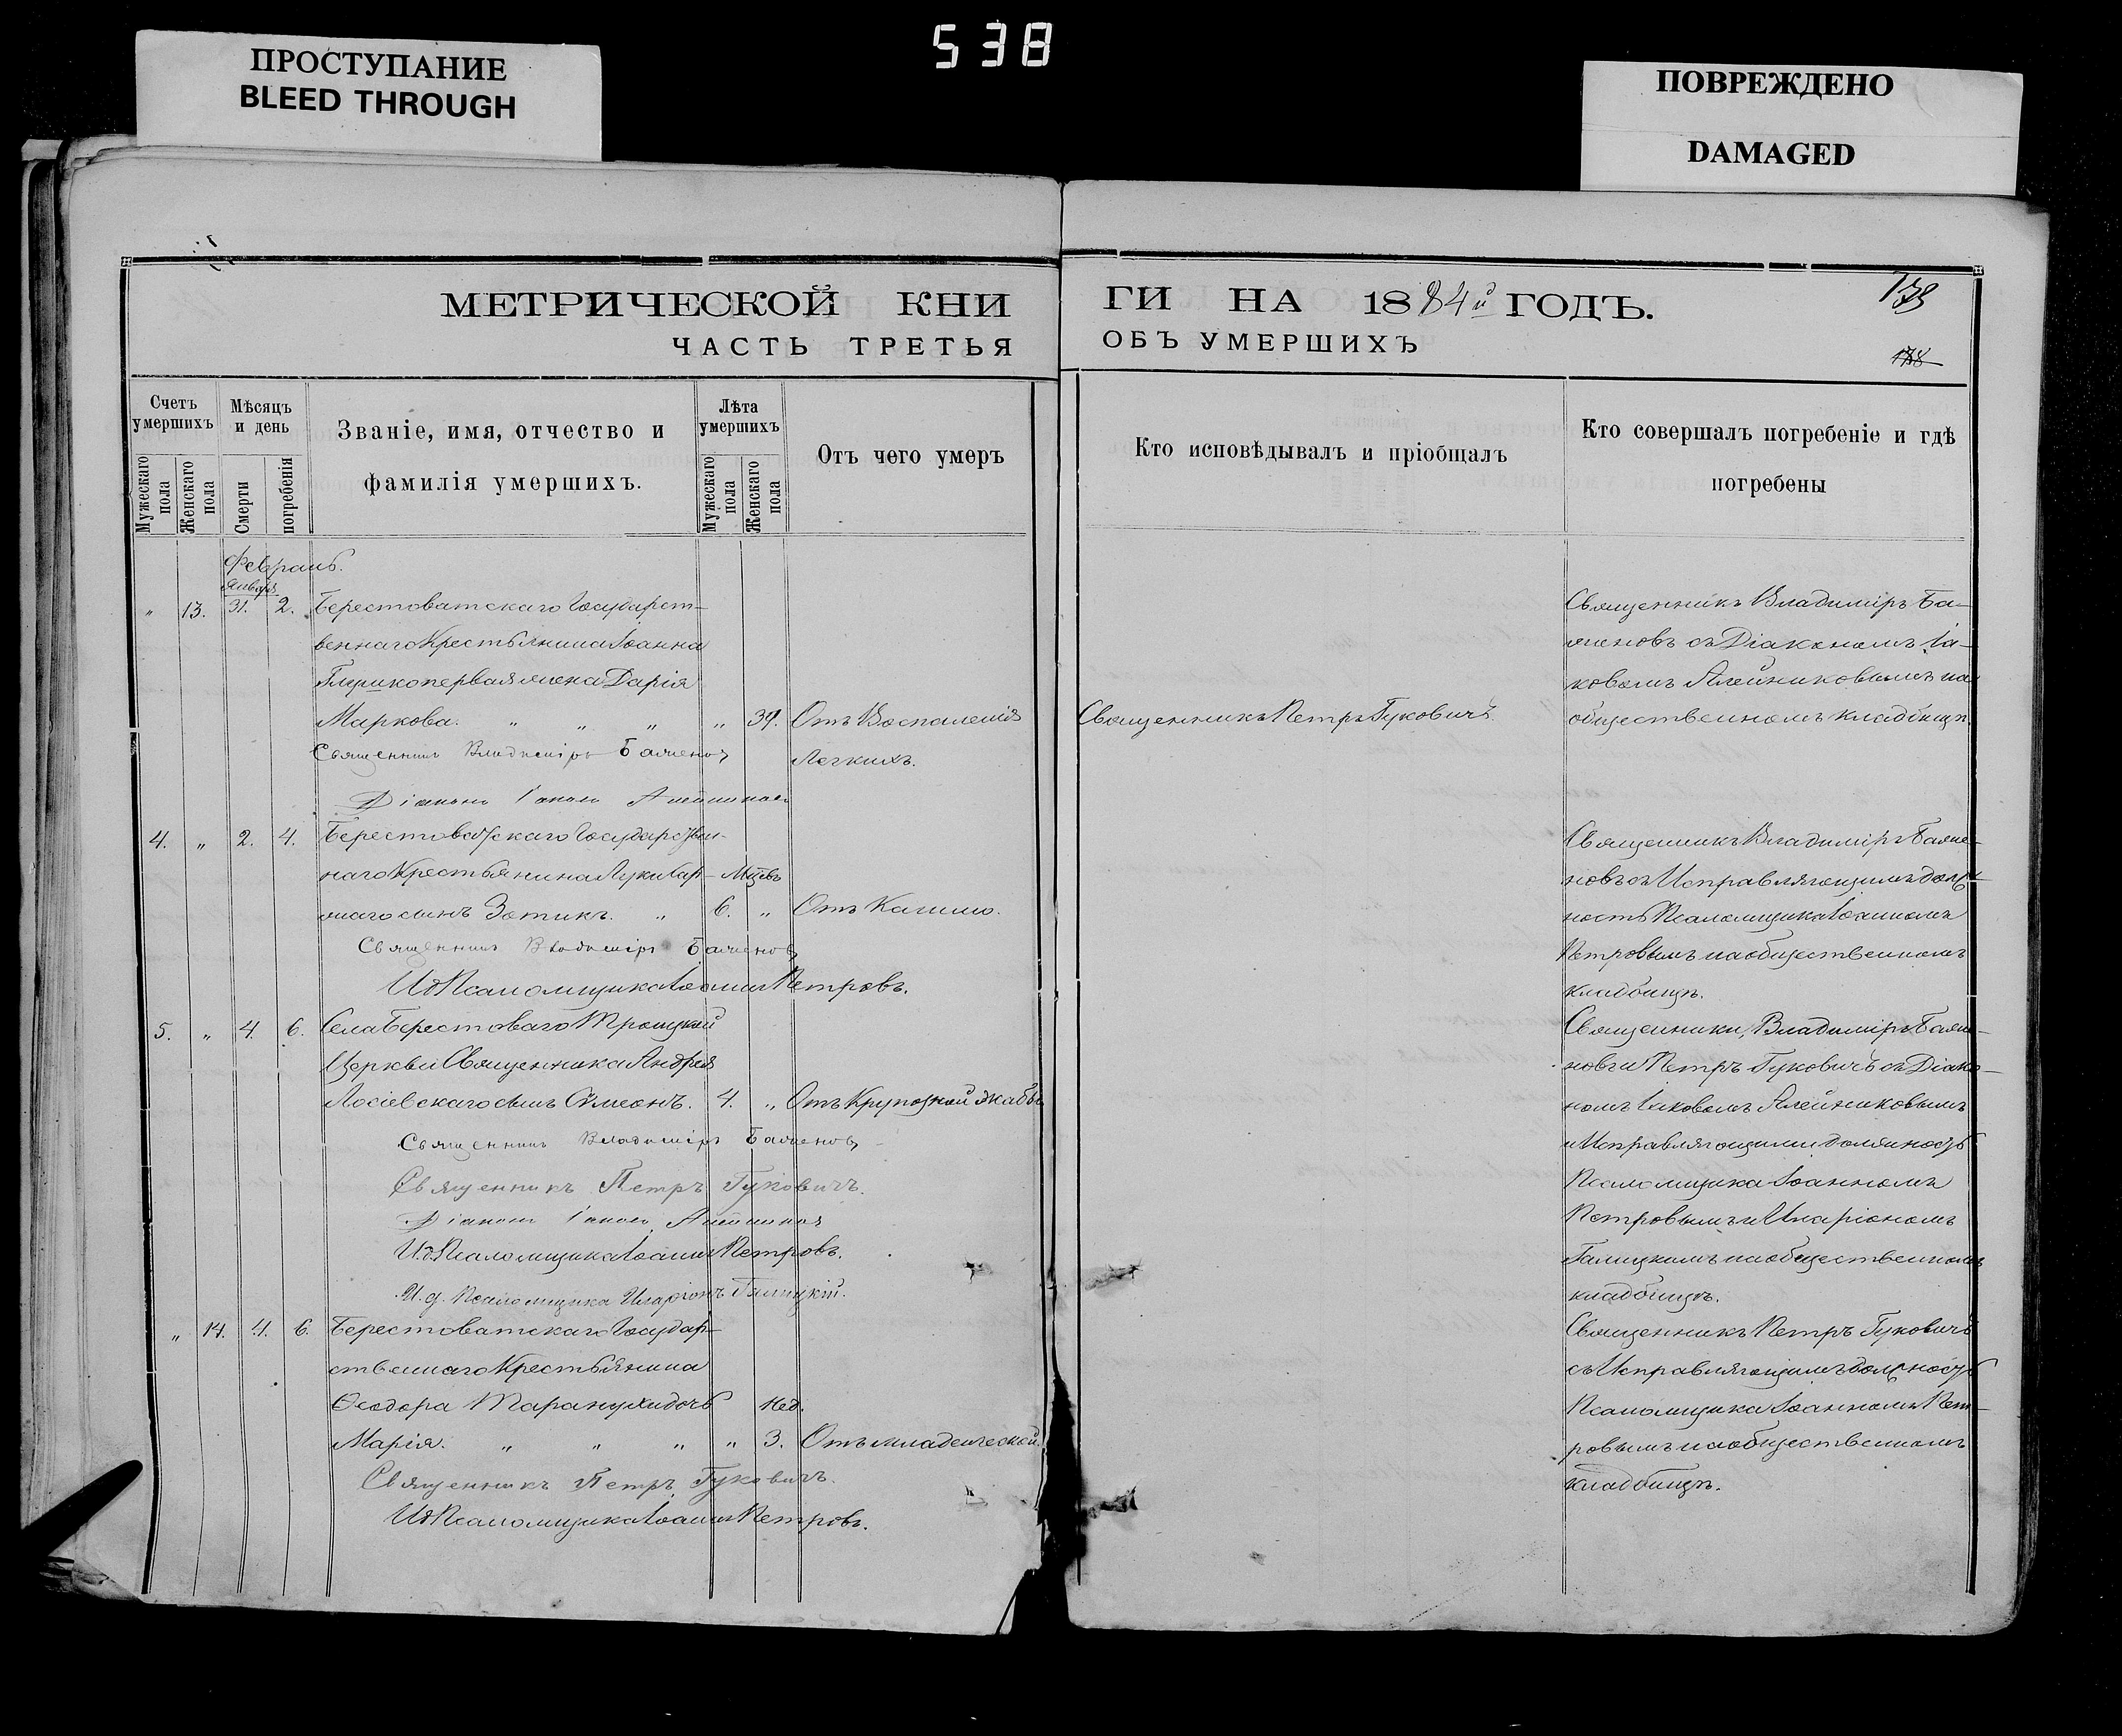 538
ПРОСТУПАНИЕ
BLEED THROUGH
ПОВРЕЖДЕНО
DAMAGED
МЕТРИЧЕСКОЙ КНИ
ГИ НА 1884й ГОДЪ.
ЧАСТЬ ТРЕТЬЯ
ОБЪ УМЕРШИХЪ
188
Счетъ умершихъ
Мужескаго пола
Женскаго пола
Мѣсяцъ и день
Смерти
погребенія
Званіе, имя, отчество и
фамилія умершихъ.
Лѣта умершихъ
Мужескаго пола
Женскаго пола
Отъ чего умеръ
Кто исповѣдывалъ и пріобщалъ
Кто совершалъ погребеніе и гдѣ
погребены
Февраль.
Января
" 13. 31. 2. Берестоватскаго Государст-
веннаго Крестьянина Іоанна
первая жена Дарія
Маркова. " " " " 39. Отъ Воспаленія
Легкихъ.
Священникъ Петръ Гуковичъ.
Священникъ Владиміръ Ба-
женовъ съ Діакономъ Іа-
ковомъ Алейниковымъ на
общественномъ кладбищѣ.
Священникъ Владиміръ Баженовъ
Діаконъ Іаковъ Алейниковъ
4. " 2. 4. Берестоватскаго Государствен-
наго Крестьянина Луки
сынъ Зотикъ. " Мцевъ 6. " Отъ Кашлю.
Священникъ Владиміръ Баже-
новъ съ Исправляющимъ долж-
ность Псаломщика Іоанномъ
Петровымъ на общественномъ
кладбищѣ.
Священникъ Владиміръ Баженовъ
И д Псаломщика Іоаннъ Петровъ.
5. " 4. 6. Села Берестоваго Троицкой
Церкви Священника Андрея
Лосіевскаго сынъ Сѵмеонъ. 4. " Отъ Крупозной жабы
Священники, Владиміръ Баже-
новъ и Петръ Гуковичъ съ Діако-
номъ Іаковомъ Алейниковымъ
и Исправляющими должность
Псаломщика Іоанномъ
Петровымъ и Иларіономъ
Галицкимъ на общественномъ
кладбищѣ.
Священникъ Владиміръ Баженовъ
Священникъ Петръ Гуковичъ.
Діаконъ Іаковъ Алейниковъ
И.д. Псаломщика Іоаннъ Петровъ.
И.д. Псаломщика Иларіонъ Галицкій.
" 14. 4. 6. Берестоватскаго Государ-
ственнаго Крестьянина
Ѳеодора Таранухи дочь
Марія. " " " " нед. 3. Отъ младенческой.
Священникъ Петръ Гуковичъ
съ Исправляющимъ должность
Псаломщика Іоанномъ Пет-
ровымъ на общественномъ
кладбищѣ.
Священникъ Петръ Гуковичъ.
И д Псаломщика Іоаннъ Петровъ.